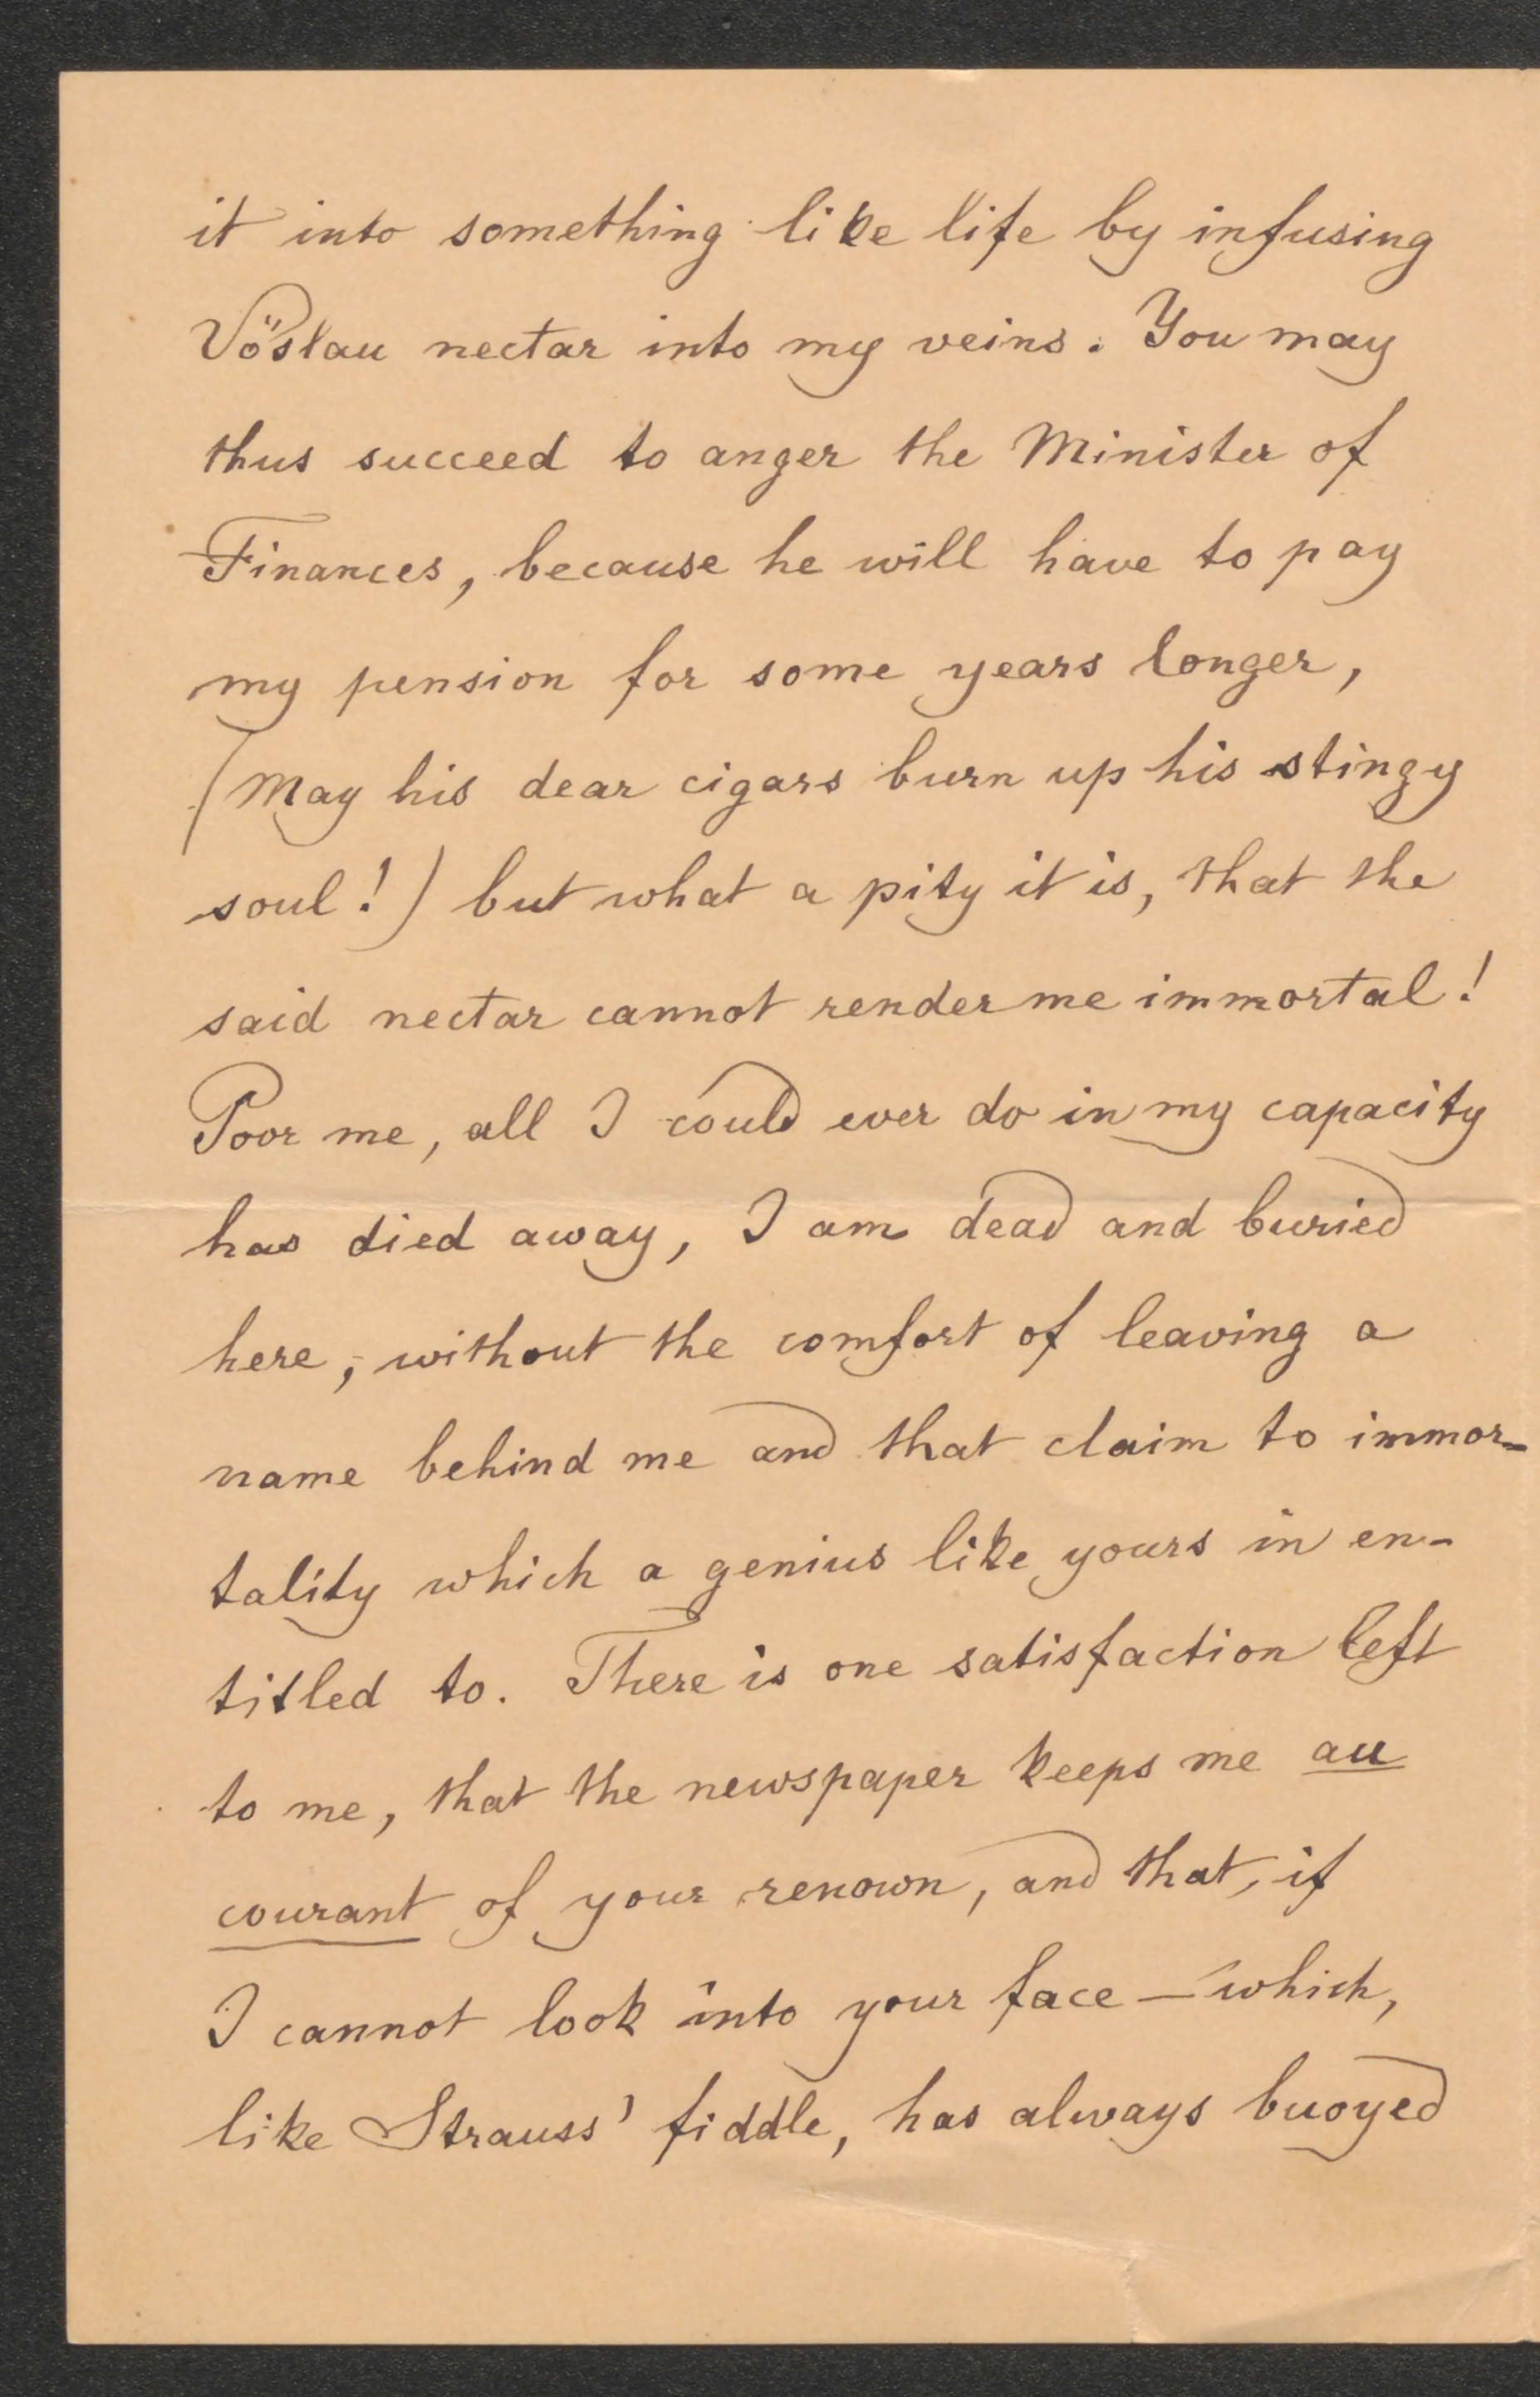 it into something like life by infusing
Vöslau nectar into my veins. You may
thus succeed to anger the Minister of
Finances, because he will have to pay
my pension for some years longer,
(May his dear cigars burn up his stingy
soul!) but what a pity it is, that the
said nectar cannot render me immortal!
Poor me, all I could ever do in my capacity
has died away, I am dead and buried
here, without the comfort of leaving a
name behind me and that claim to immor-
tality which a genius like yours in en-
titled to. There is one satisfaction left
to me, that the newspaper keeps me au
courant of your renown, and that, if
I cannot look into your face — which,
like Strauss' fiddle, has always buoyed